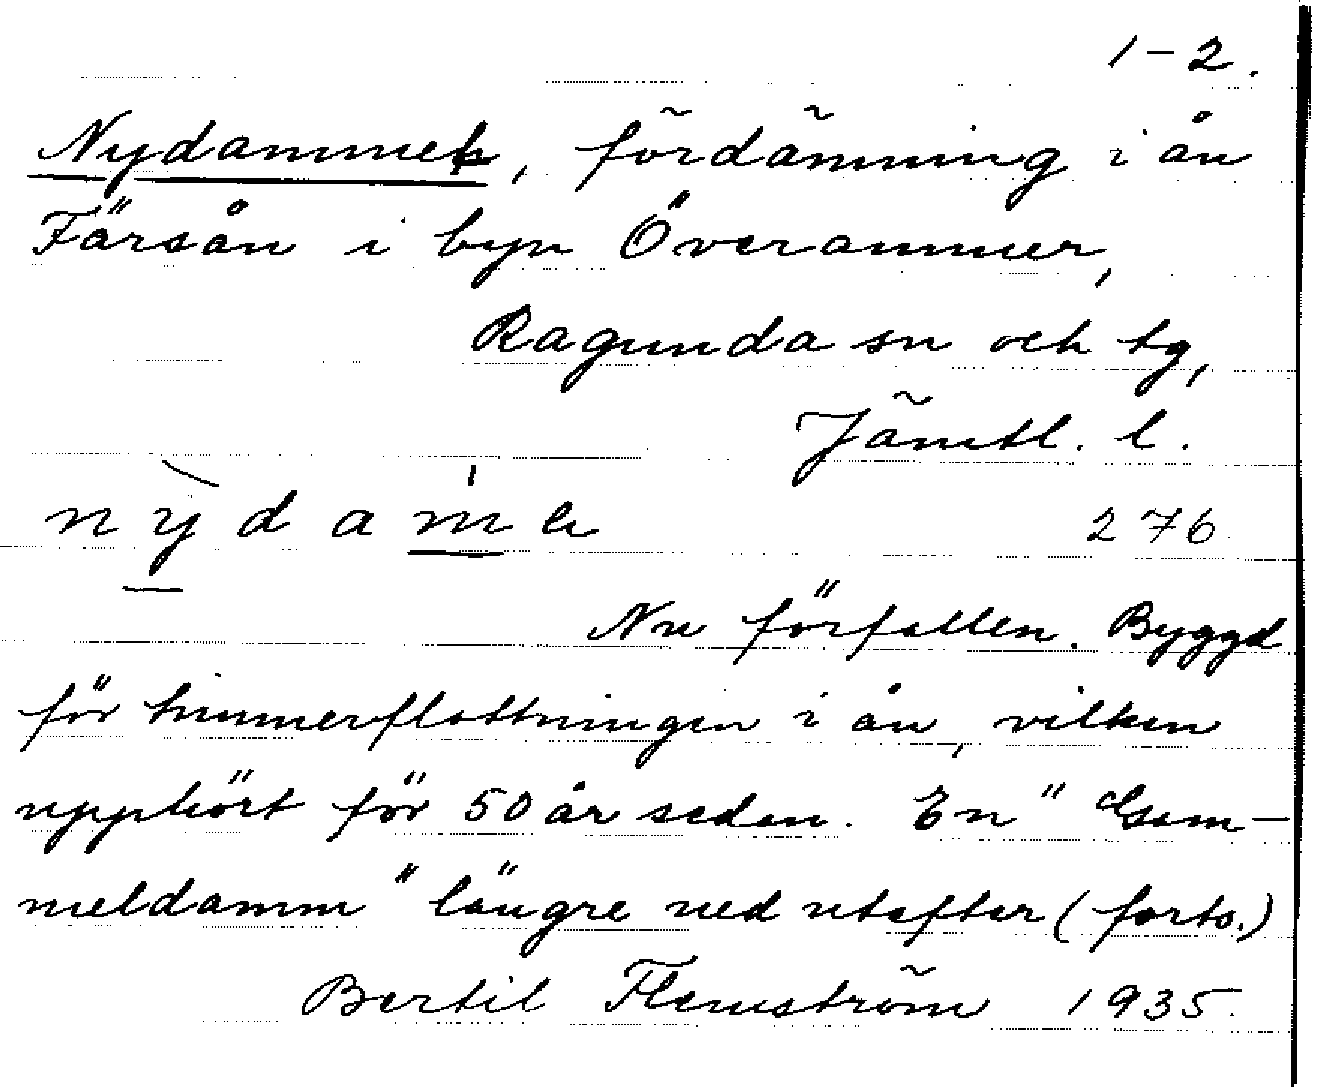 1-2.
Nydammen, fördämning i ån
Färsån i byn Överammer,
Ragunda sn och tg,
Jämtl. l.
nỳdam̀en 276
Nu förfallen. Byggd
för timmerflottningen i ån, vilken
upphört för 50 år sedan. En "Gam-
meldamm" längre ned utefter (forts.)
Bertil Flemström 1935.